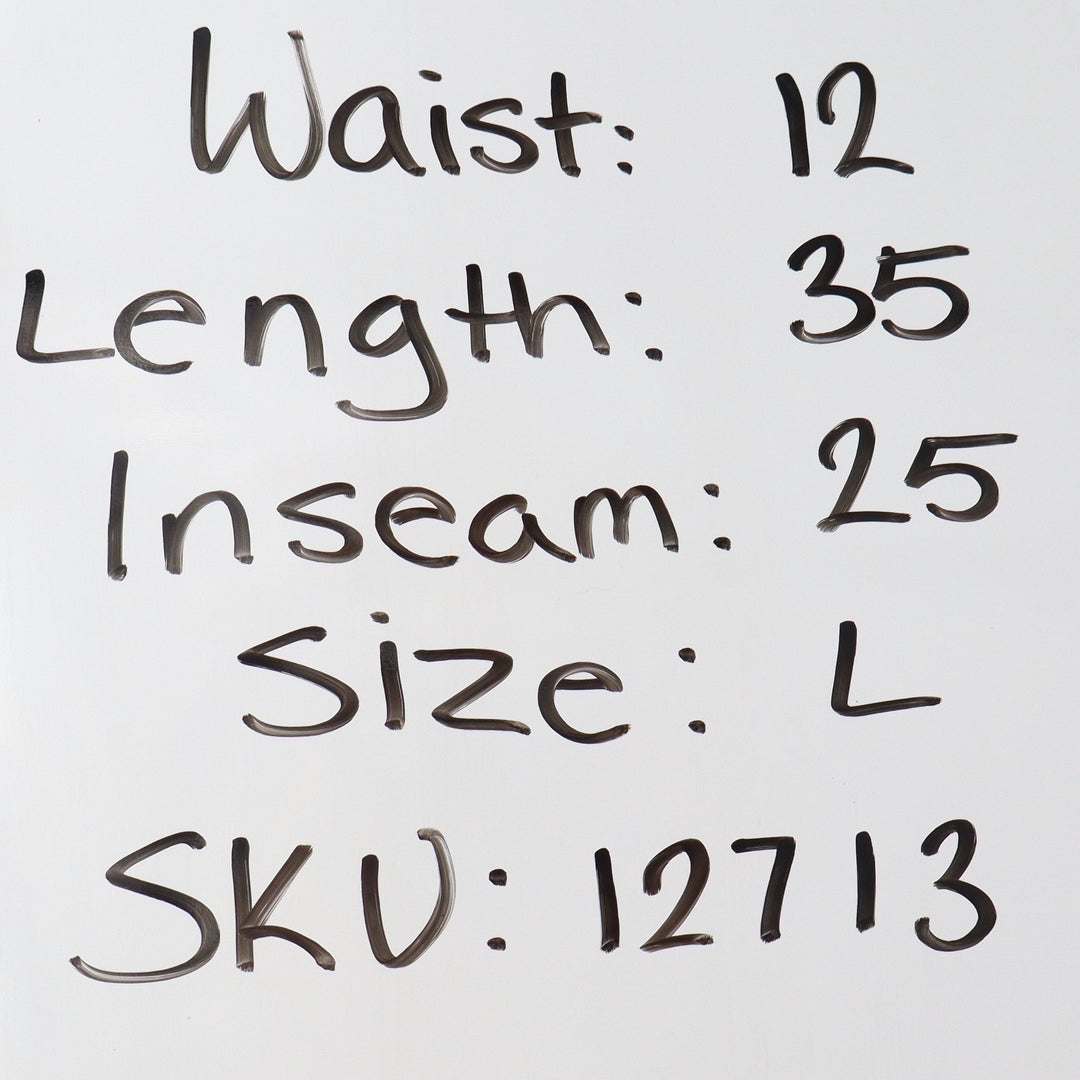 Waist: 12
Length: 35
Inseam: 25
Size: L
SKU: 12713